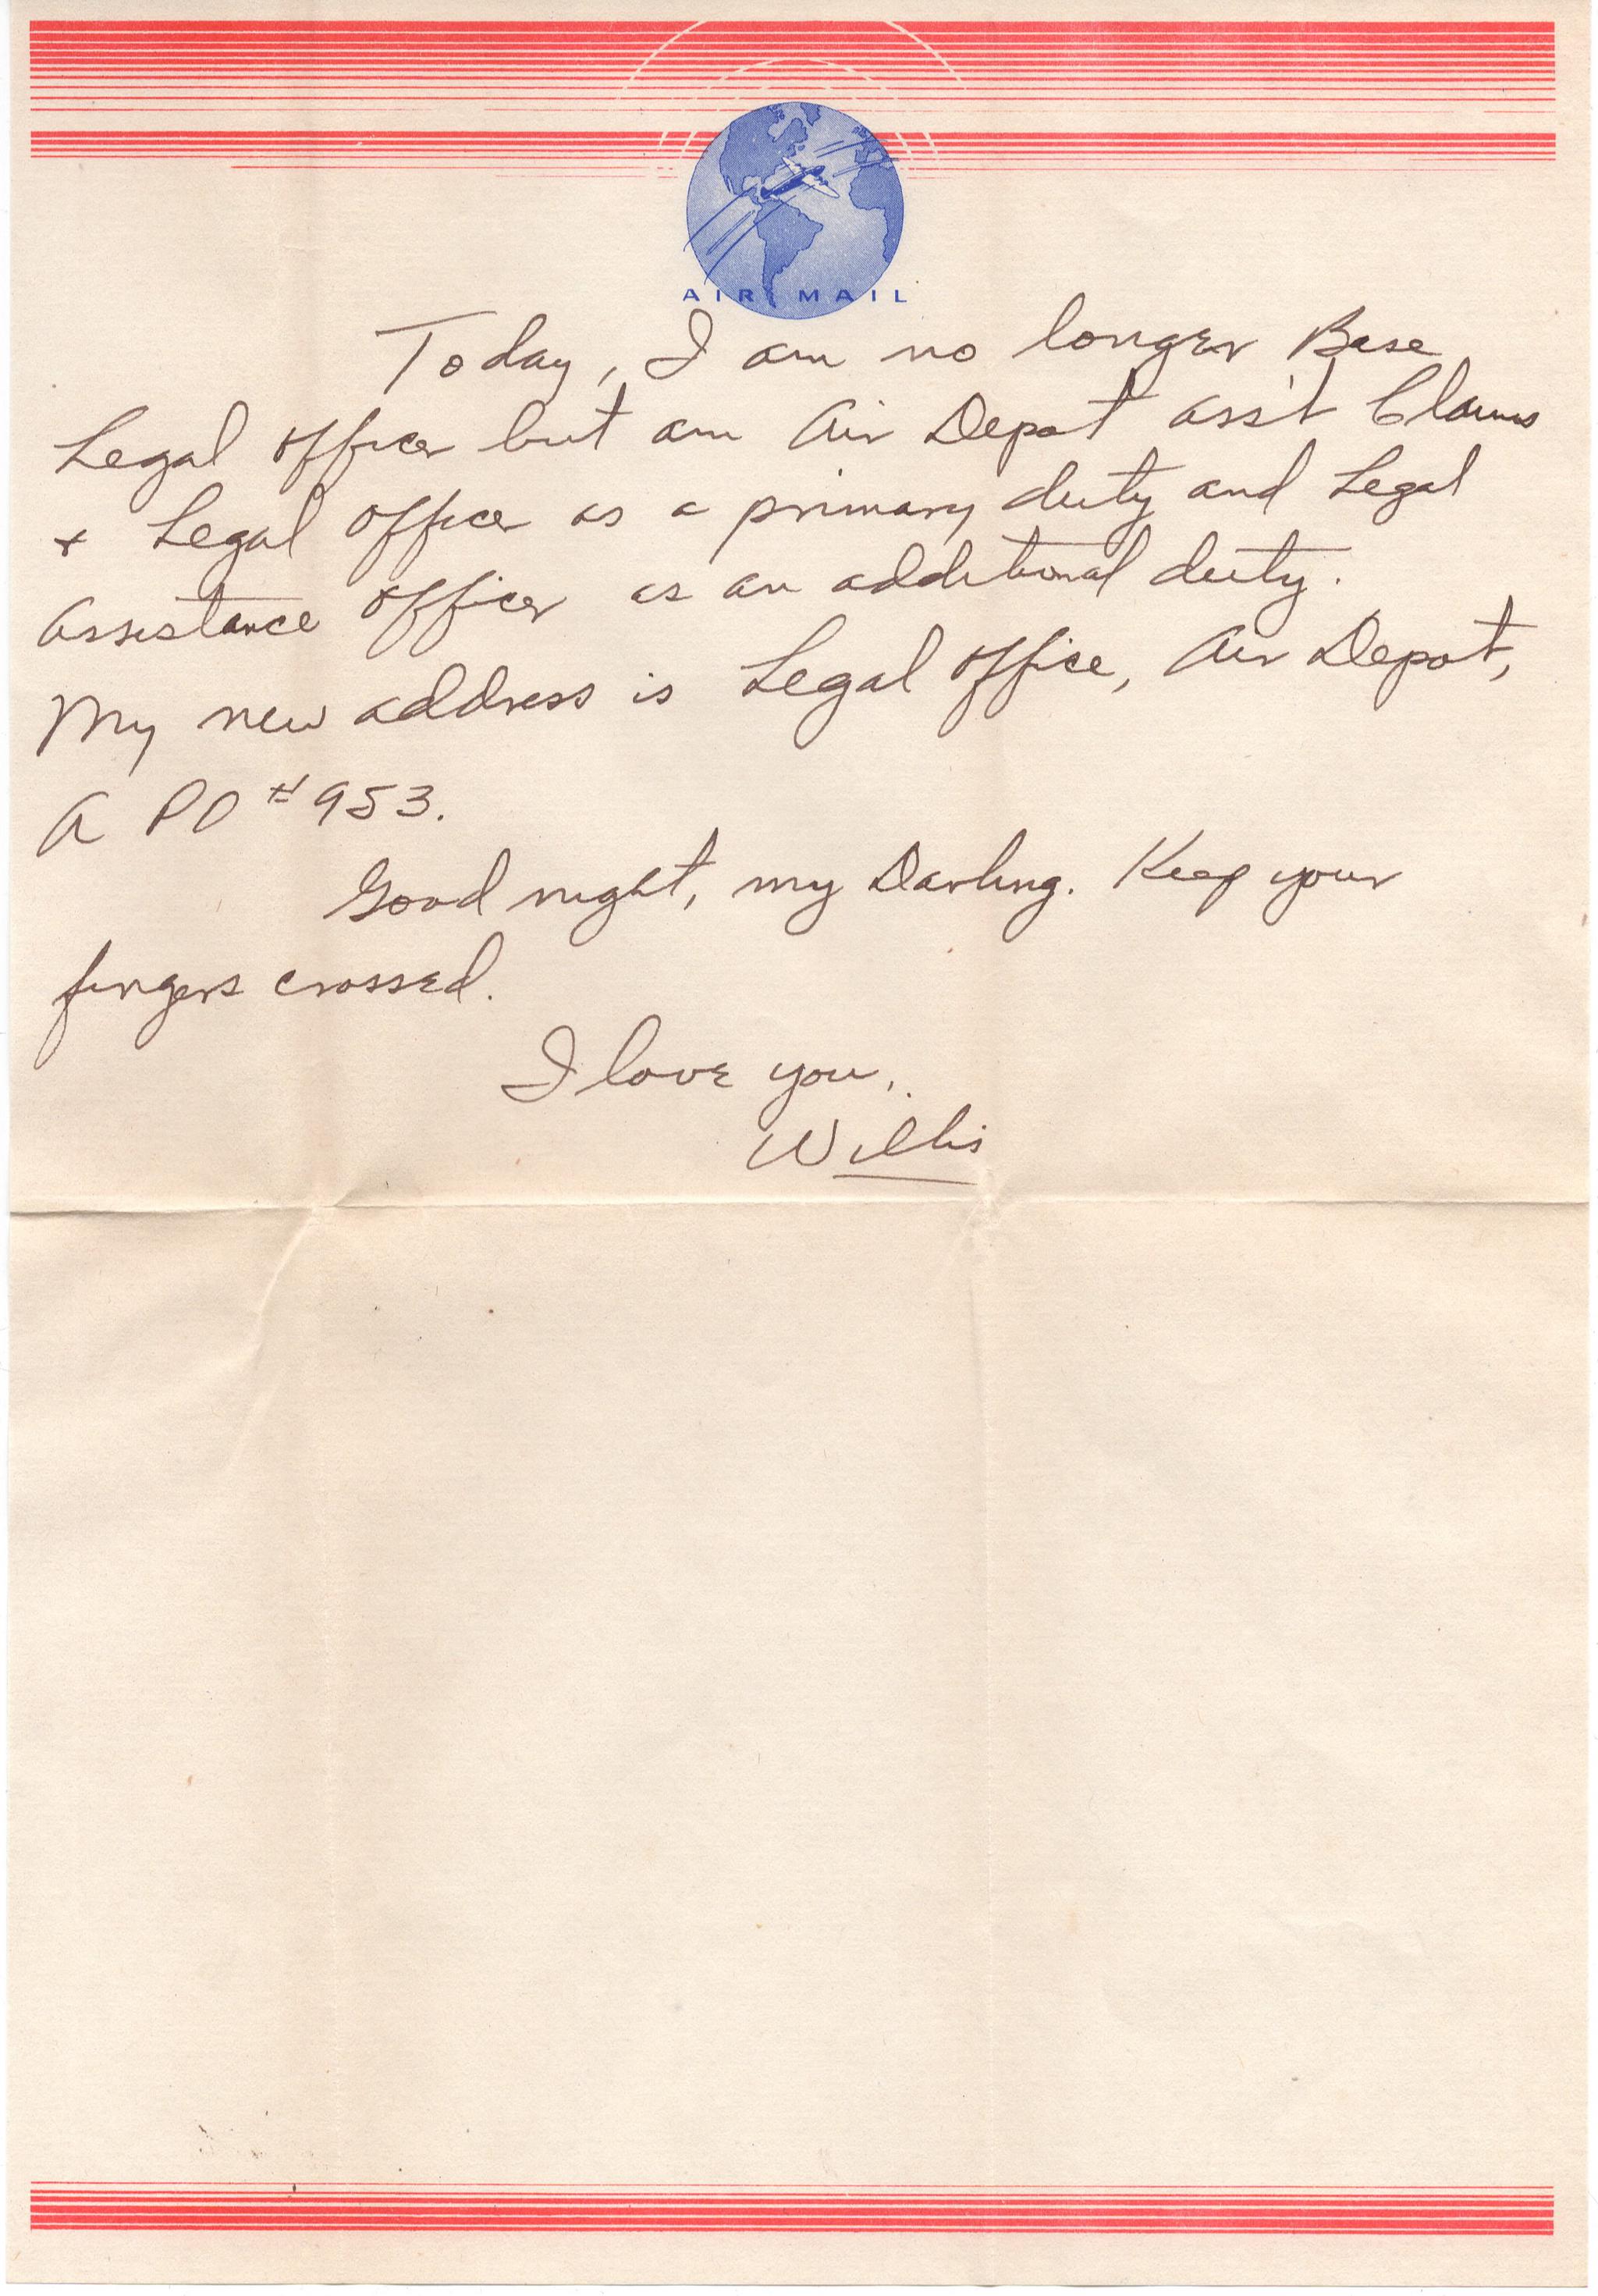 AIR MAIL
Today, I am no longer Base
Legal Officer but am Air Depot ass't Claims
+ Legal Officer as a primary duty and Legal
Assistance Officer as an additional duty.
My new address is Legal Office, Air Depot,
A P O #953.
Good night, my Darling. Keep your
fingers crossed.
I love you,
Willis